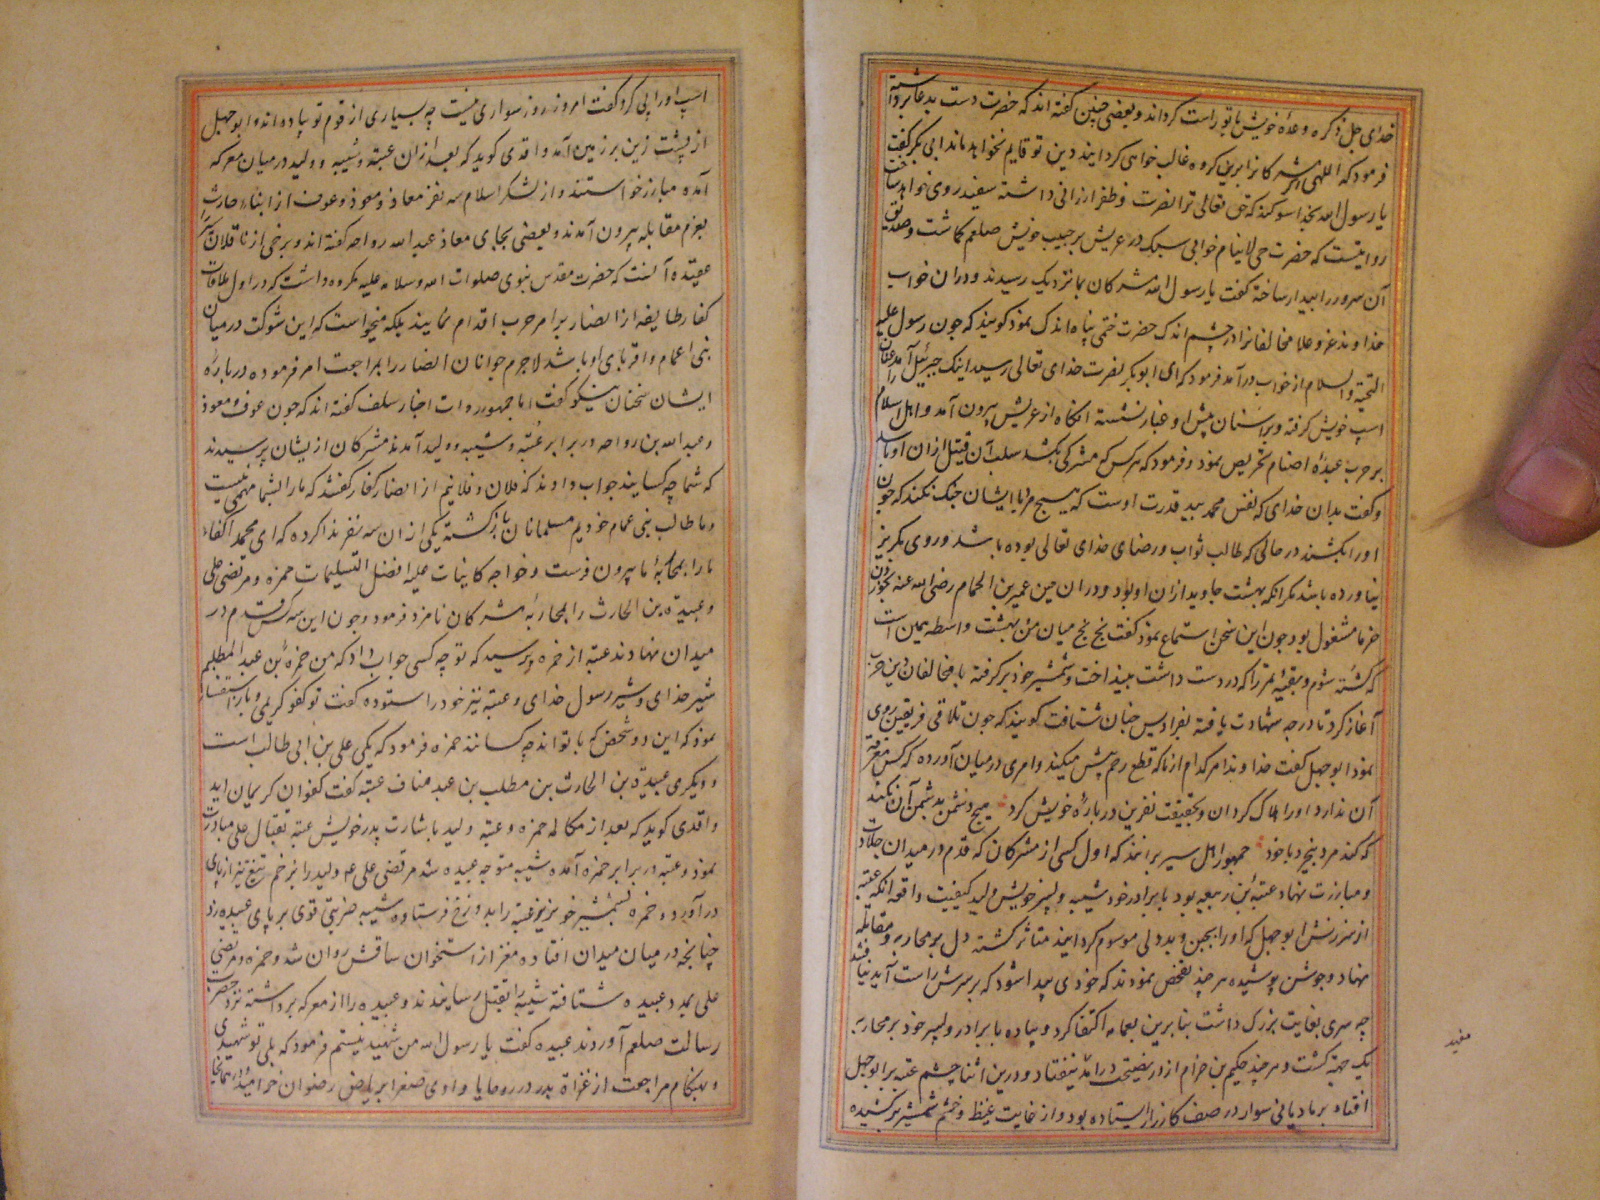 خدای جل ذکره وعده خویش با تو راست کرداند و بعضی چنین کفته اند که حضرت دست بدعا برداشته
فرمود که اللهم مشرکانرا برین کروه غالب خواهی کردانید دین تو قایم نخواهد ماند ابی بکر کفت
یا رسول الله بخدا سوکند که حق تعالی ترا نصرت و ظفر ارزانی داشته سفید روی خواهد ساخت
روایتست که حضرت حی لاینام خوابی سبک در عریش بر حبیب خویش صلعم کماشت و صدیق
آن سرور را بیدار ساخته کفت یا رسول الله مشرکان بما نزدیک رسیدند و دران خواب
خداوند عز و علا مخالفانرا در چشم حضرت ختمی پناه اندک نمود کویند که چون رسول علیه
التحیة والسلام از خواب درآمد فرمود که ای ابوبکر نصرت خدای تعالی رسید اینک جبرئیل آمد عنان
اسپ خویش کرفته و بر اسنان پیش او غبار نشسته انکاه از عریش بیرون آمد و اهل اسلام را
بر حرب عبدۀ اصنام تحریص نمود و فرمود که هر کس که مشرکی بکشد سلب آن قتیل ازان او باشد
و کفت بدان خدای که نفس محمد بید قدرت اوست که هیچ مرد با ایشان جنک نکند که چون
او را بکشند در حالتی که طالب ثواب و رضای خدای تعالی بوده باشد و روی بکریز
نیاورده باشد مکر انکه بهشت جاوید ازان او بود و دران حین عمیر بن الحمام رضی الله عنه بخوردن
خرما مشغول بود چون این سخن استماع نمود کفت بخ بخ میان من و بهشت واسطه همین است
که کشته شوم و بقیۀ تمر را که در دست داشت بینداخت و شمشیر خود بر کرفته با مخالفان دین حرب
آغاز کرد تا درجه شهادت یافته بفرادیس جنان شتافت کویند که چون تلاقی فریقین روی
نمود ابوجهل کفت خداوندا هر کدام از ما که قطع رحم پیش میکند و امری درمیان آورده که کس معرفت
آن ندارد او را هلاک کردان و بحقیقت نفرین دربارۀ خویش کرد هیچ دشمن بدشمن آن نکند
که کند مرد بیخرد با خود جمهور اهل سیر برانند که اول کسی از مشرکان که قدم در میدان جلادت
و مبارزت نهاد عتبة بن ربیعه بود با برادر خود شیبه و پسر خویش ولید کیفیت واقعه انکه عتبه
از سرزنش ابوجهل که او را بجبن و بددلی موسوم کردانید متاثر کشته دل بر محاربه و مقابله
نهاد و جوشن پوشیده هر چند تفحص نمودند که خودی پیدا شود که بر سرش راست آید نیافتند
چه سری بغایت بزرک داشت بنابرین بعمامه اکتفا کرد و پیاده با برادر و پسر خود بر محاربه
یک جهت کشت و هر چند حکیم بن خرام از در نصیحت درآمد نیفتاد و درین اثنا چشم عتبه بر ابوجهل
افتاد بر مادیانی سوار در صف کارزار ایستاده بود و از غایت غیظ و خشم شمشیر برکشیده
مفید
اسپ او را پی کرد و کفت امروز روز سواری نیست چه بسیاری از قوم تو پیاده اند و ابوجهل
از پشت زین بر زمین آمد واقدی کوید که بعد ازان عتبه و شیبه و ولید در میان معرکه
آمده مبارز خواستند و از لشکر اسلام سه نفر معاذ و معوذ و عوف از ابناء حارث
بعزم مقابله بیرون آمدند و بعضی بجای معاذ عبد الله رواحه کفته اند و برخی از ناقلان را
عقیده آنست که حضرت مقدس نبوی صلوات الله وسلامه علیه مکروه داشت که در اول ملاقات
کفار طایفه از انصار برامر حرب اقدام نمایند بلکه میخواست که این شوکت در میان
بنی اعمام و اقربای او باشد لاجرم جوانان انصار را بمراجعت امر فرموده دربارۀ
ایشان سخنان نیکو کفت اما جمهور روات اخبار سلف کفته اند که چون عوف و معوذ
و عبد الله بن رواحه در برابر عتبه و شیبه و ولید آمدند مشرکان ازیشان پرسیدند
که شما چه کسانید جواب دادند که فلان و فلانیم از انصار کفار کفتند که ما را بشما مهمی نیست
و ما طالب بنی عمام خودیم مسلمانان باز کشته یکی ازان سه نفر ندا کرده که ای محمد اکفاء
ما را بمحاربۀ ما بیرون فرست و خواجه کاینات علیه افضل التسلیمات حمزه و مرتضی علی
و عبیدة بن الحارث را بمحاربۀ مشرکان نامزد فرمود و چون این سه کس قدم در
میدان نهادند عتبه از حمزه پرسید که تو چه کسی جواب داد که من حمزة بن عبد المطلبم
شیر خدای و شیر رسول خدای و عتبه نیز خود را ستوده کفت تو کفو کریمی و باز استفسار
نمود که این دو شخص که با تو اند چه کسانند حمزه فرمود که یکی علی بن ابی طالب است
و دیکری عبیدة بن الحارث بن مطلب بن عبد مناف عتبه کفت کفوان کریمان اید
واقدی کوید که بعد از مکالمه حمزه و عتبه ولید باشارت پدر خویش عتبه بقتال علی مبادرت
نمود و عتبه در برابر حمزه آمده شیبه متوجه عبیده شد مرتضی علی عم ولید را بزخم تیغ تیز از پای
درآورد و حمزه بشمشیر خونریز عتبه را بدوزخ فرستاده شیبه ضربتی قوی بر پای عبیده زد
چنانچه در میان میدان افتاده مغز از استخوان ساقش روان شد و حمزه و مرتضی
علی بمدد عبیده شتافته شیبه را بقتل رسانیدند و عبیده را از معرکه برداشته نزد حضرت
رسالت صلعم آوردند عبیده کفت یا رسول الله من شهید نیستم فرمود که بلی تو شهیدی
و بهنکام مراجعت از غزاة بدر در روحا یا وادی صفرا بریاض رضوان خرامید و همانجا